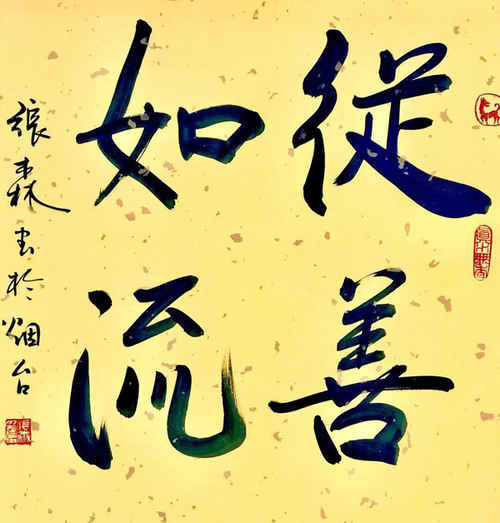 從善
如流
張森书於烟台